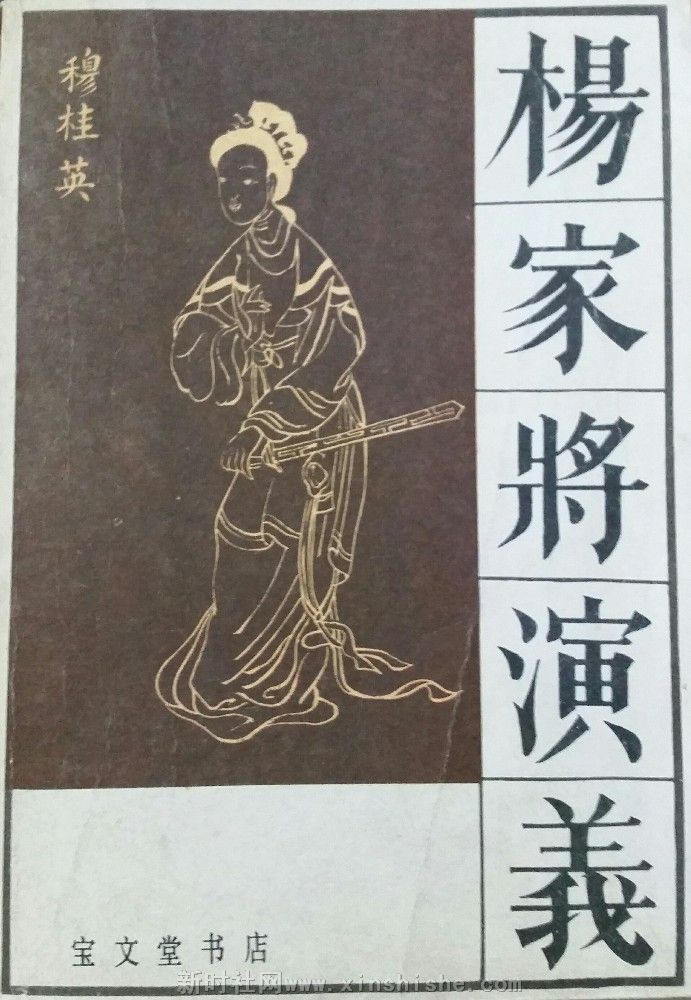 楊家將演義
穆桂英
宝文堂书店
新时社网www.xinshishe.com